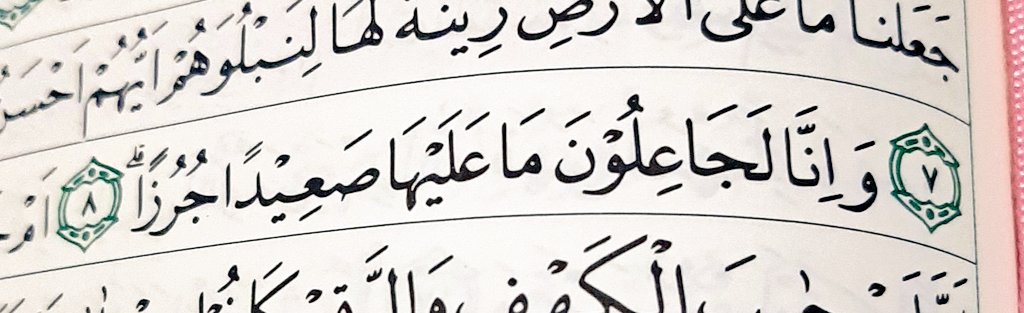 جَعَلْنَا مَا عَلَى الْاَرْضِ زِيْنَةً لَّهَا لِنَبْلُوَهُمْ اَيُّهُمْ اَحْسَنُ
٧ وَاِنَّا لَجَاعِلُوْنَ مَا عَلَيْهَا صَعِيْدًا جُرُزًاۗ ٨ اَمْ
الْكَهْفِ وَالرَّقِيْمِ